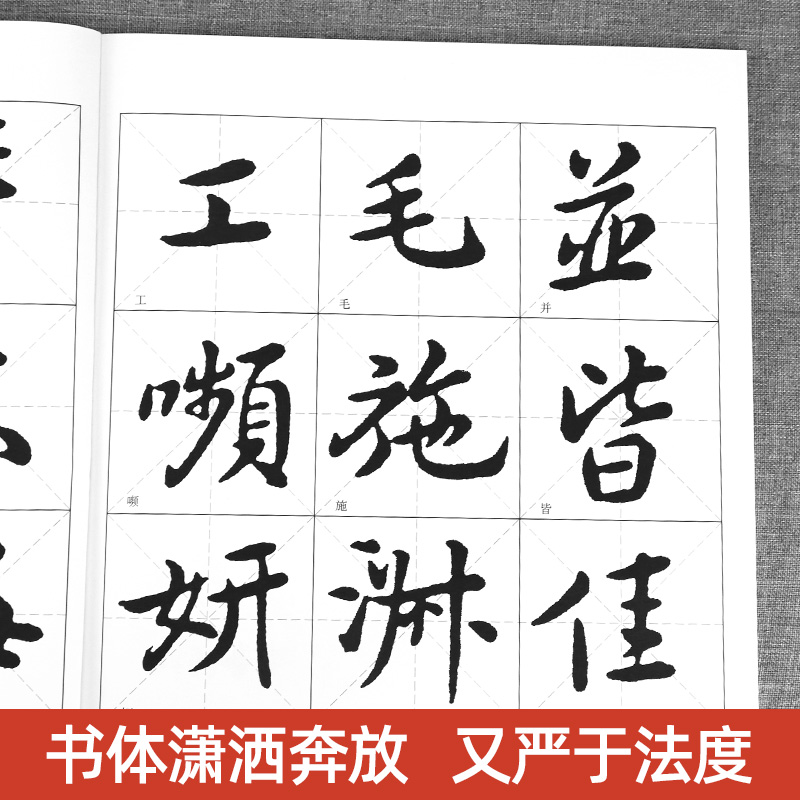 工 毛 並
工 毛 并
嚬 施 皆
嚬 施 皆
妍 淑 佳
书体潇洒奔放 又严于法度